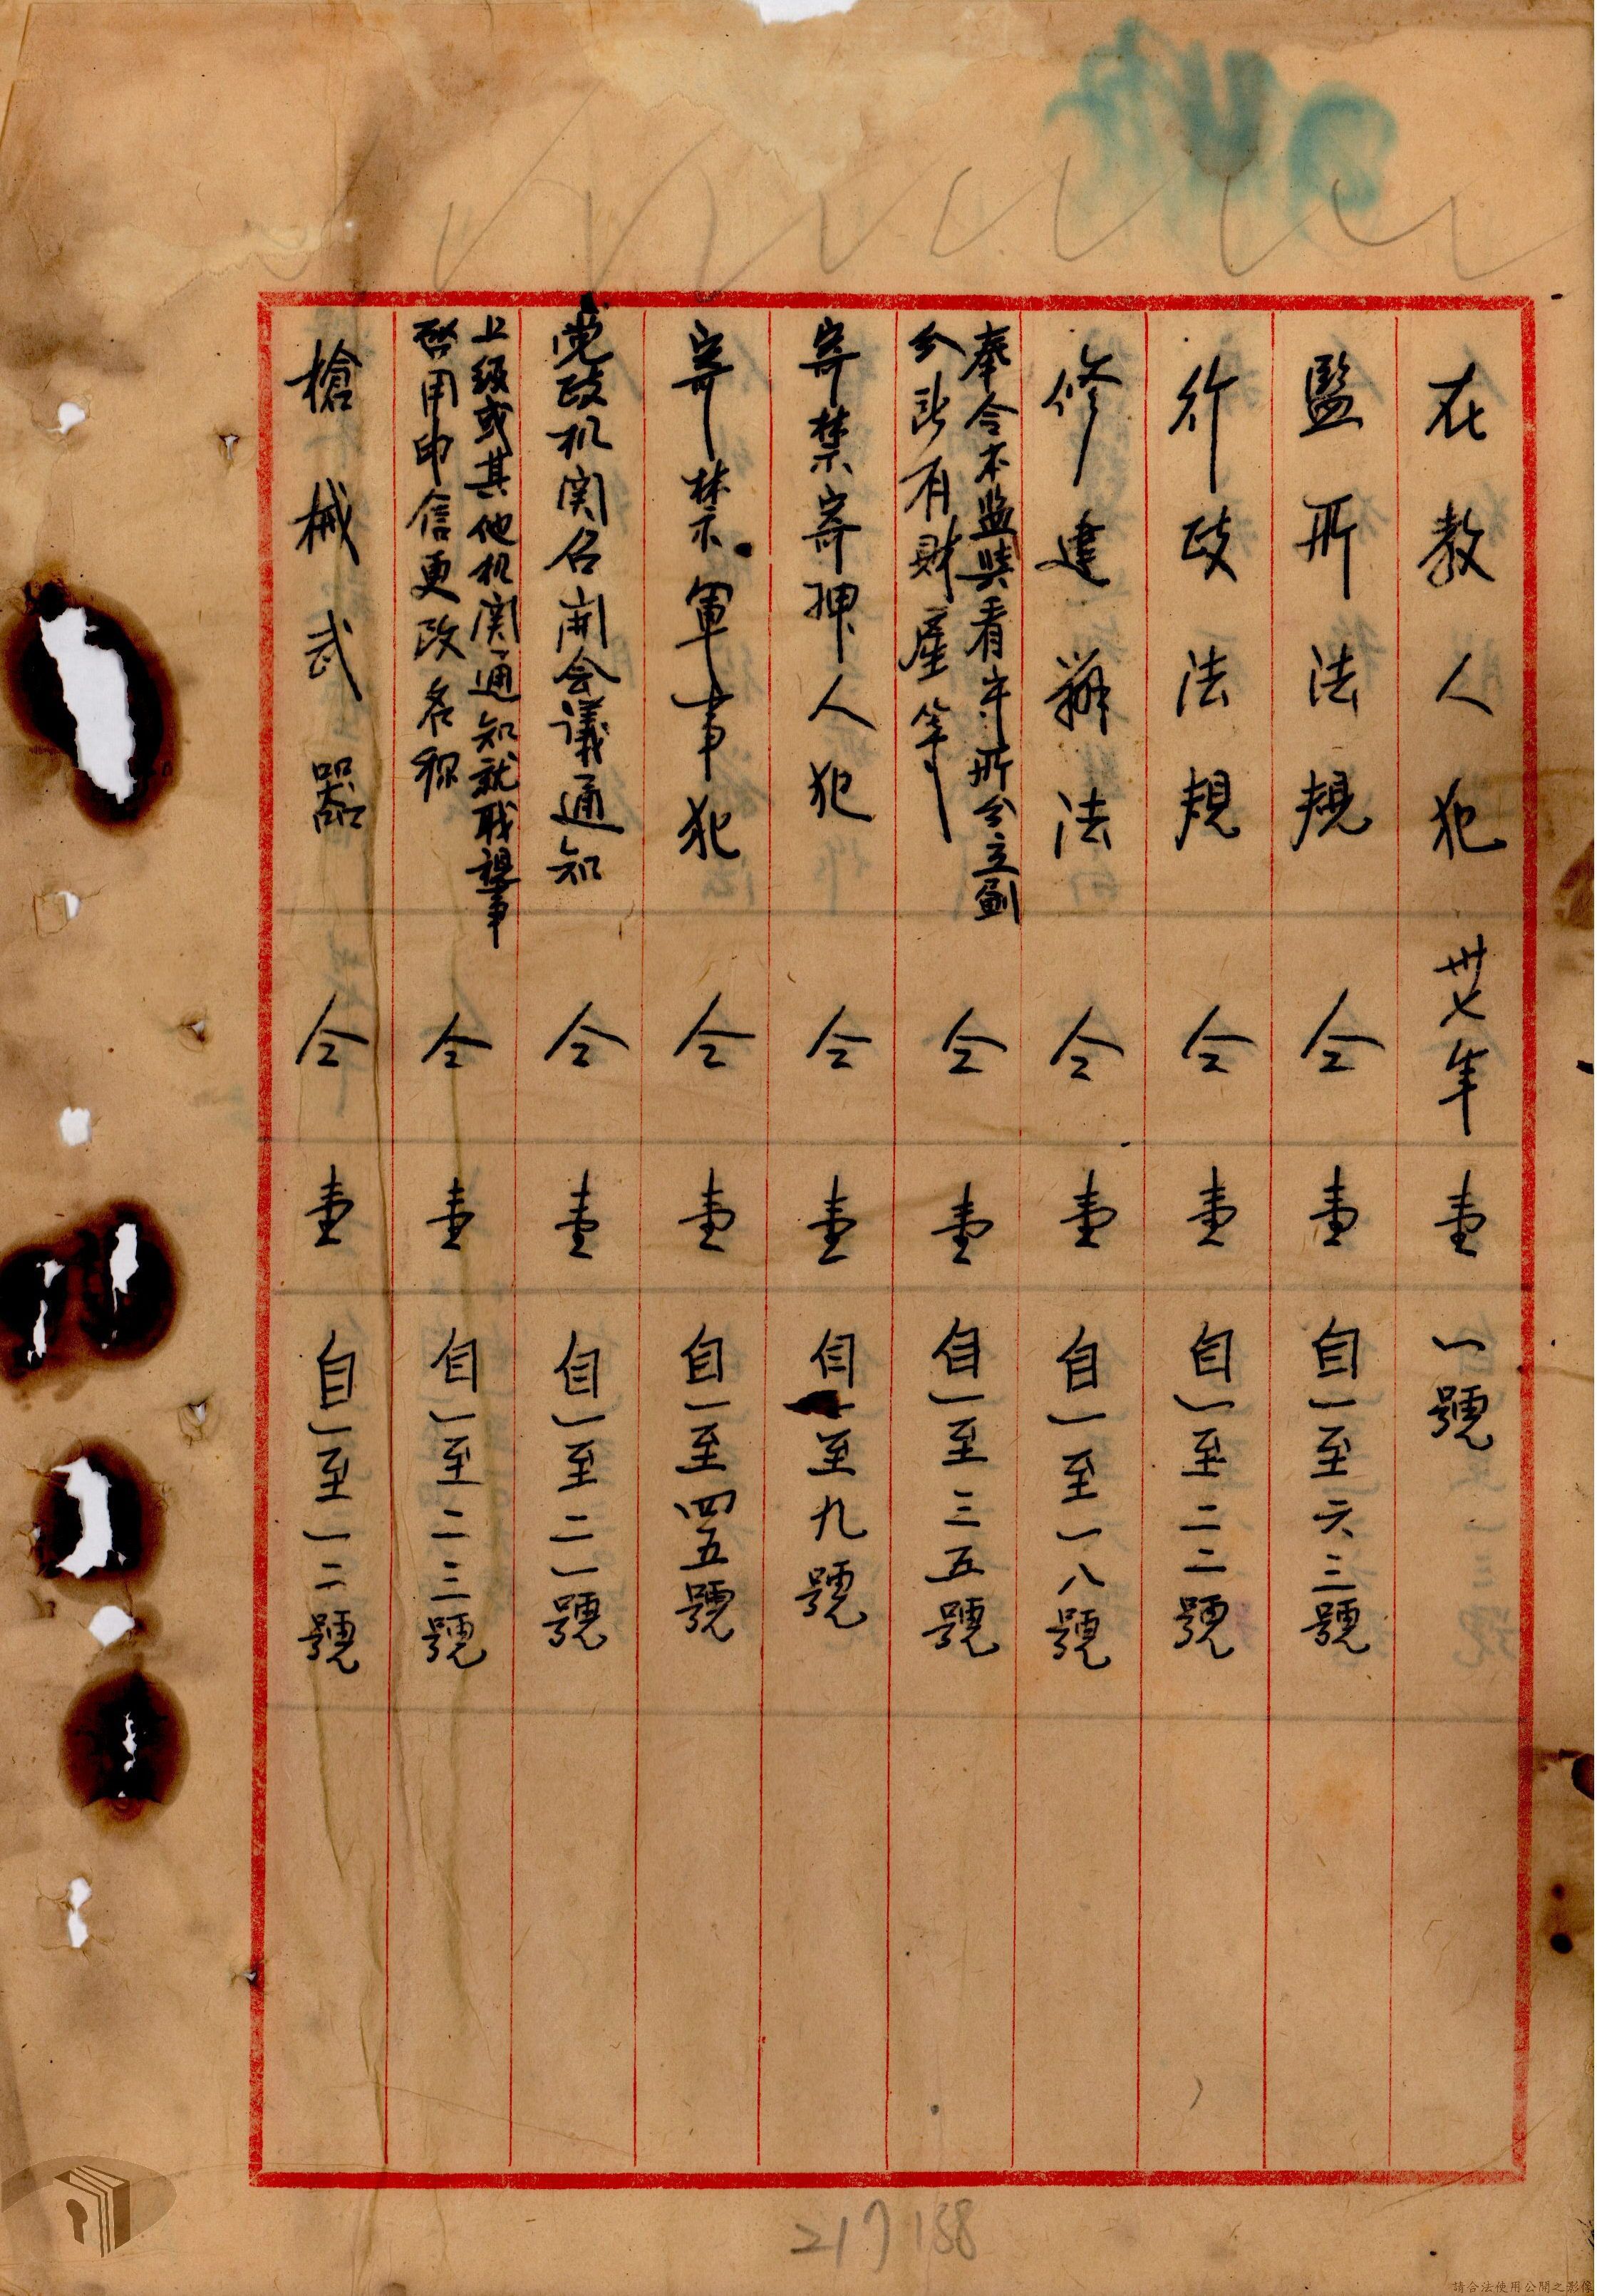 在教人犯 卅七年 壹 一號
監所法規 仝 壹 自一至六三號
行政法規 仝 壹 自一至二二號
修建辦法 仝 壹 自一至一八號
奉令本监與看守所分立劃
分所有財產等 仝 壹 自一至三五號
寄禁寄押人犯 仝 壹 自一至九號
寄禁軍事犯 仝 壹 自一至四五號
党政机関召開会議通知 仝 壹 自一至二一號
上級或其他机関通知就职視事
啓用印信更改名称 仝 壹 自一至二三號
槍械武器 仝 壹 自一至一二號
217 188
請合法使用公開之影像